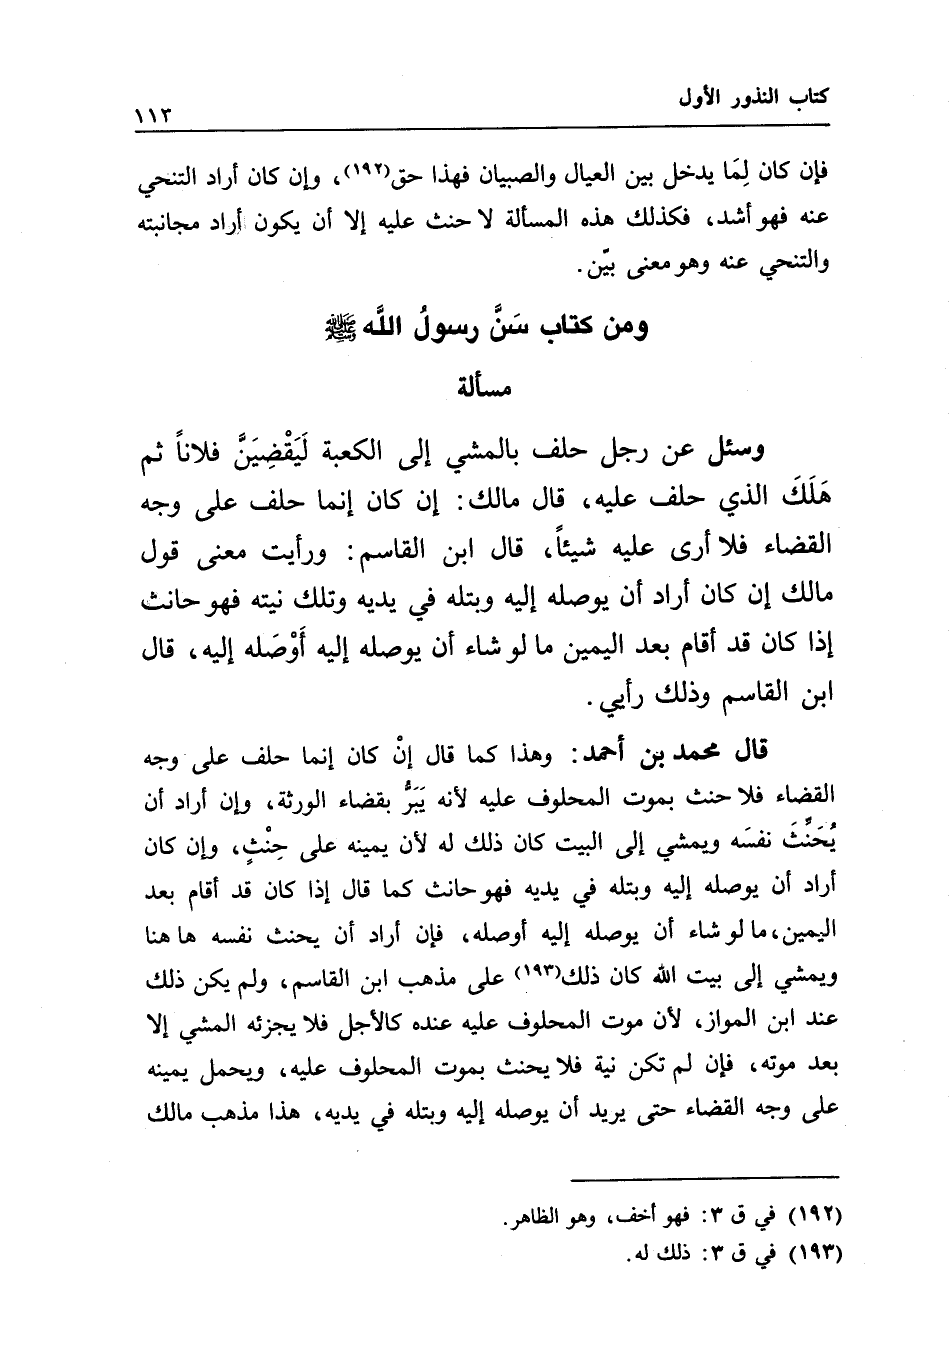 كتاب النذور الأول
١١٣
فإن كان لِمَا يدخل بين العيال والصبيان فهذا حق(١٩٢)، وإن كان أراد التنحي
عنه فهو أشد، فكذلك هذه المسألة لا حنث عليه إلا أن يكون أراد مجانبته
والتنحي عنه وهو معنى بيّن.
ومن كتاب سَنَّ رسولُ اللَّه ﷺ
مسألة
وسئل عن رجل حلف بالمشي إلى الكعبة لَيَقْضِيَنَّ فلاناً ثم
هَلَكَ الذي حلف عليه، قال مالك: إن كان إنما حلف على وجه
القضاء فلا أرى عليه شيئاً، قال ابن القاسم: ورأيت معنى قول
مالك إن كان أراد أن يوصله إليه وبتله في يديه وتلك نيته فهو حانث
إذا كان قد أقام بعد اليمين ما لو شاء أن يوصله إليه أوْصَله إليه، قال
ابن القاسم وذلك رأيي.
قال محمد بن أحمد: وهذا كما قال إنْ كان إنما حلف على وجه
القضاء فلا حنث بموت المحلوف عليه لأنه يَبَرُّ بقضاء الورثة، وإن أراد أن
يُحَنِّثَ نفسَه ويمشي إلى البيت كان ذلك له لأن يمينه على حِنْثٍ، وإن كان
أراد أن يوصله إليه وبتله في يديه فهو حانث كما قال إذا كان قد أقام بعد
اليمين، ما لو شاء أن يوصله إليه أوصله، فإن أراد أن يحنث نفسه ها هنا
ويمشي إلى بيت الله كان ذلك(١٩٣) على مذهب ابن القاسم، ولم يكن ذلك
عند ابن المواز، لأن موت المحلوف عليه عنده كالأجل فلا يجزئه المشي إلا
بعد موته، فإن لم تكن نية فلا يحنث بموت المحلوف عليه، ويحمل يمينه
على وجه القضاء حتى يريد أن يوصله إليه وبتله في يديه، هذا مذهب مالك
(١٩٢) في ق ٣: فهو أخف، وهو الظاهر.
(١٩٣) في ق ٣: ذلك له.